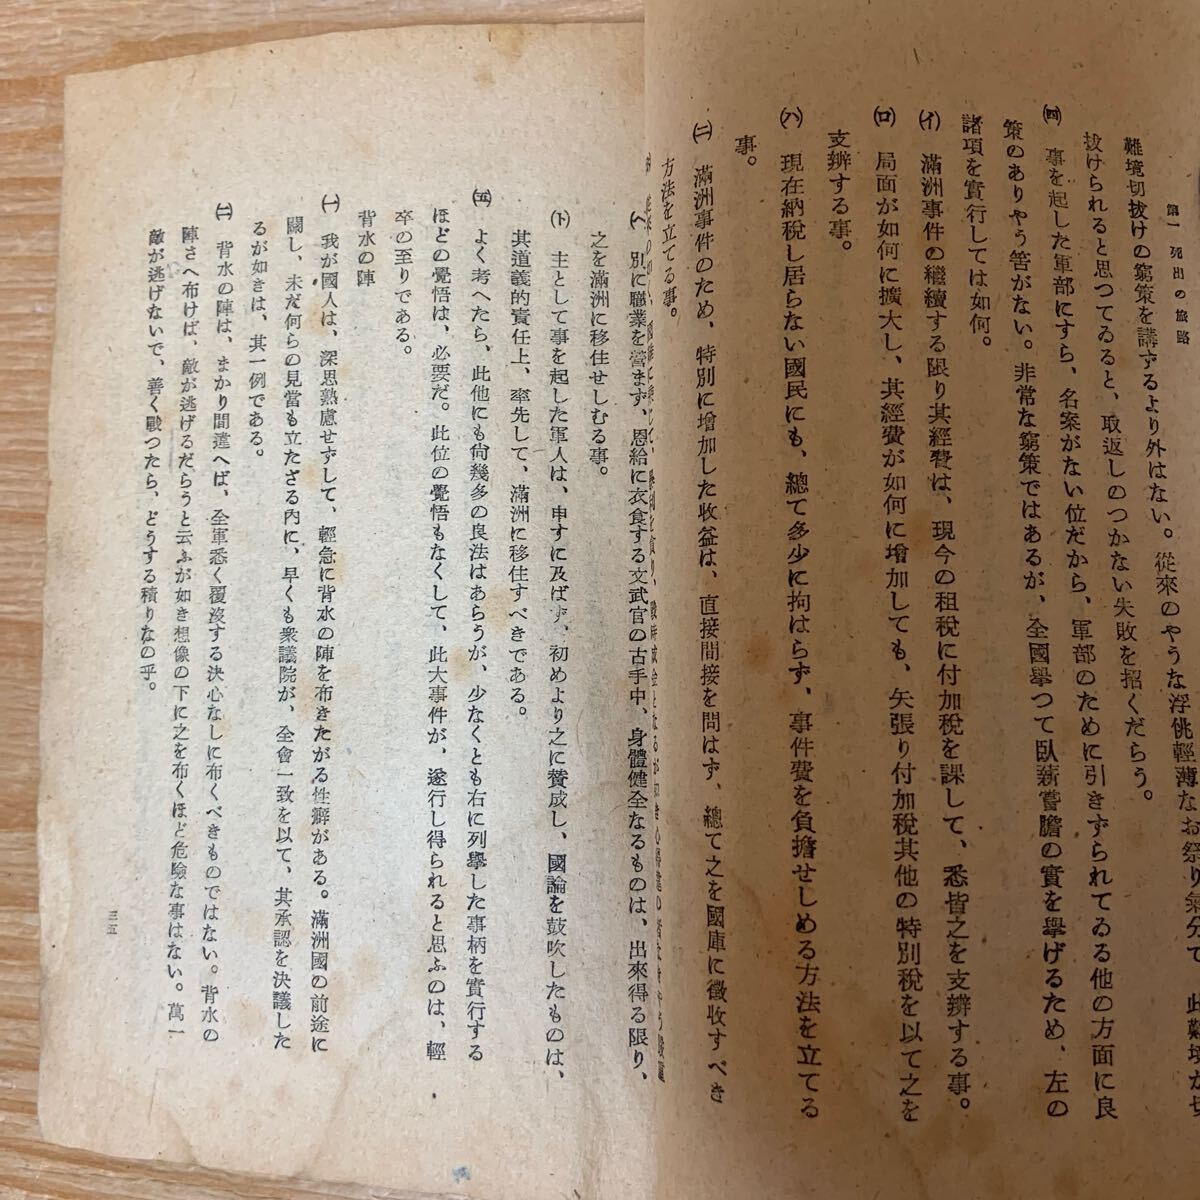 第一 死出の旅路
難境切抜けの窮策を講ずるより外はない。從來のやうな浮佻輕薄なお祭り氣分で、此難境が切
拔けられると思つてゐると、取返しのつかない失敗を招くだらう。
㈣ 事を起した軍部にすら、名案がない位だから、軍部のために引きずられてゐる他の方面に良
策のありやう筈がない。非常な窮策ではあるが、全國擧つて臥薪嘗膽の實を擧げるため、左の
諸項を實行しては如何。
(イ) 滿洲事件の繼續する限り其經費は、現今の租稅に付加稅を課して、悉皆之を支辨する事。
(ロ) 局面が如何に擴大し、其經費が如何に增加しても、矢張り付加稅其他の特別稅を以て之を
支辨する事。
(ハ) 現在納稅し居らない國民にも、總て多少に拘はらず、事件費を負擔せしめる方法を立てる
事。
(ニ) 滿洲事件のため、特別に增加した收益は、直接間接を問はず、總て之を國庫に徵收すべき
方法を立てる事。
(ヘ) 別に職業を營まず、恩給に衣食する文武官の古手中、身體健全なるものは、出來得る限り、
之を滿洲に移住せしむる事。
(ト) 主として事を起した軍人は、申すに及ばず、初めより之に贊成し、國論を鼓吹したものは、
其道義的責任上、率先して、滿洲に移住すべきである。
㈤ よく考へたら、此他にも尙幾多の良法はあらうが、少なくとも右に列擧した事柄を實行する
ほどの覺悟は、必要だ。此位の覺悟もなくして、此大事件が、遂行し得られると思ふのは、輕
卒の至りである。
背水の陣
㈠ 我が國人は、深思熟慮せずして、輕急に背水の陣を布きたがる性癖がある。滿洲國の前途に
關し、未だ何らの見當も立たざる內に、早くも衆議院が、全會一致を以て、其承認を決議した
るが如きは、其一例である。
㈡ 背水の陣は、まかり間違へば、全軍悉く覆沒する決心なしに布くべきものではない。背水の
陣さへ布けば、敵が逃げるだらうと云ふが如き想像の下に之を布くほど危險な事はない。萬一
敵が逃げないで、善く戰つたら、どうする積りなの乎。
三五